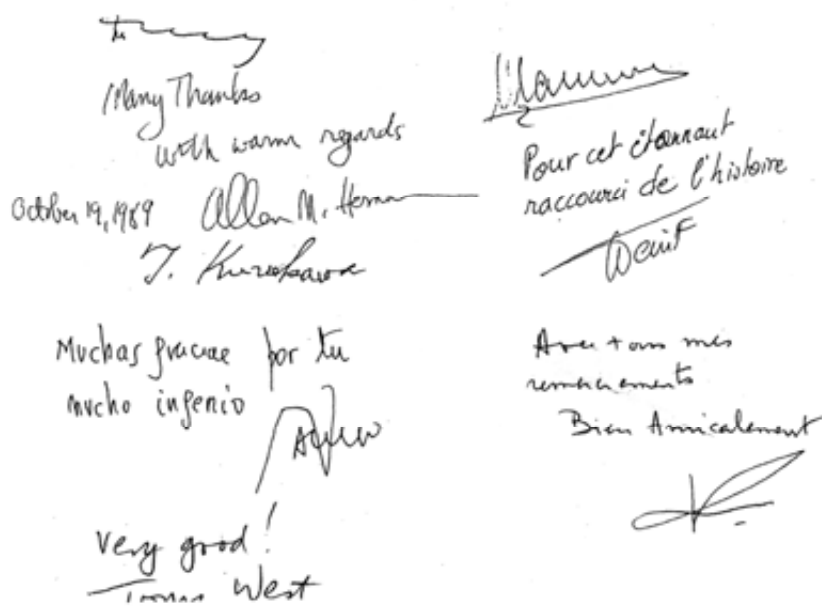 Many Thanks
with warm regards
October 19, 1989 Allan M.
T. Kurokawa
Muchas gracias por tu
mucho ingenio
Very good!
West
Pour cet étonnant
raccourci de l'histoire
Avec tous mes
remerciements
Bien Amicalement